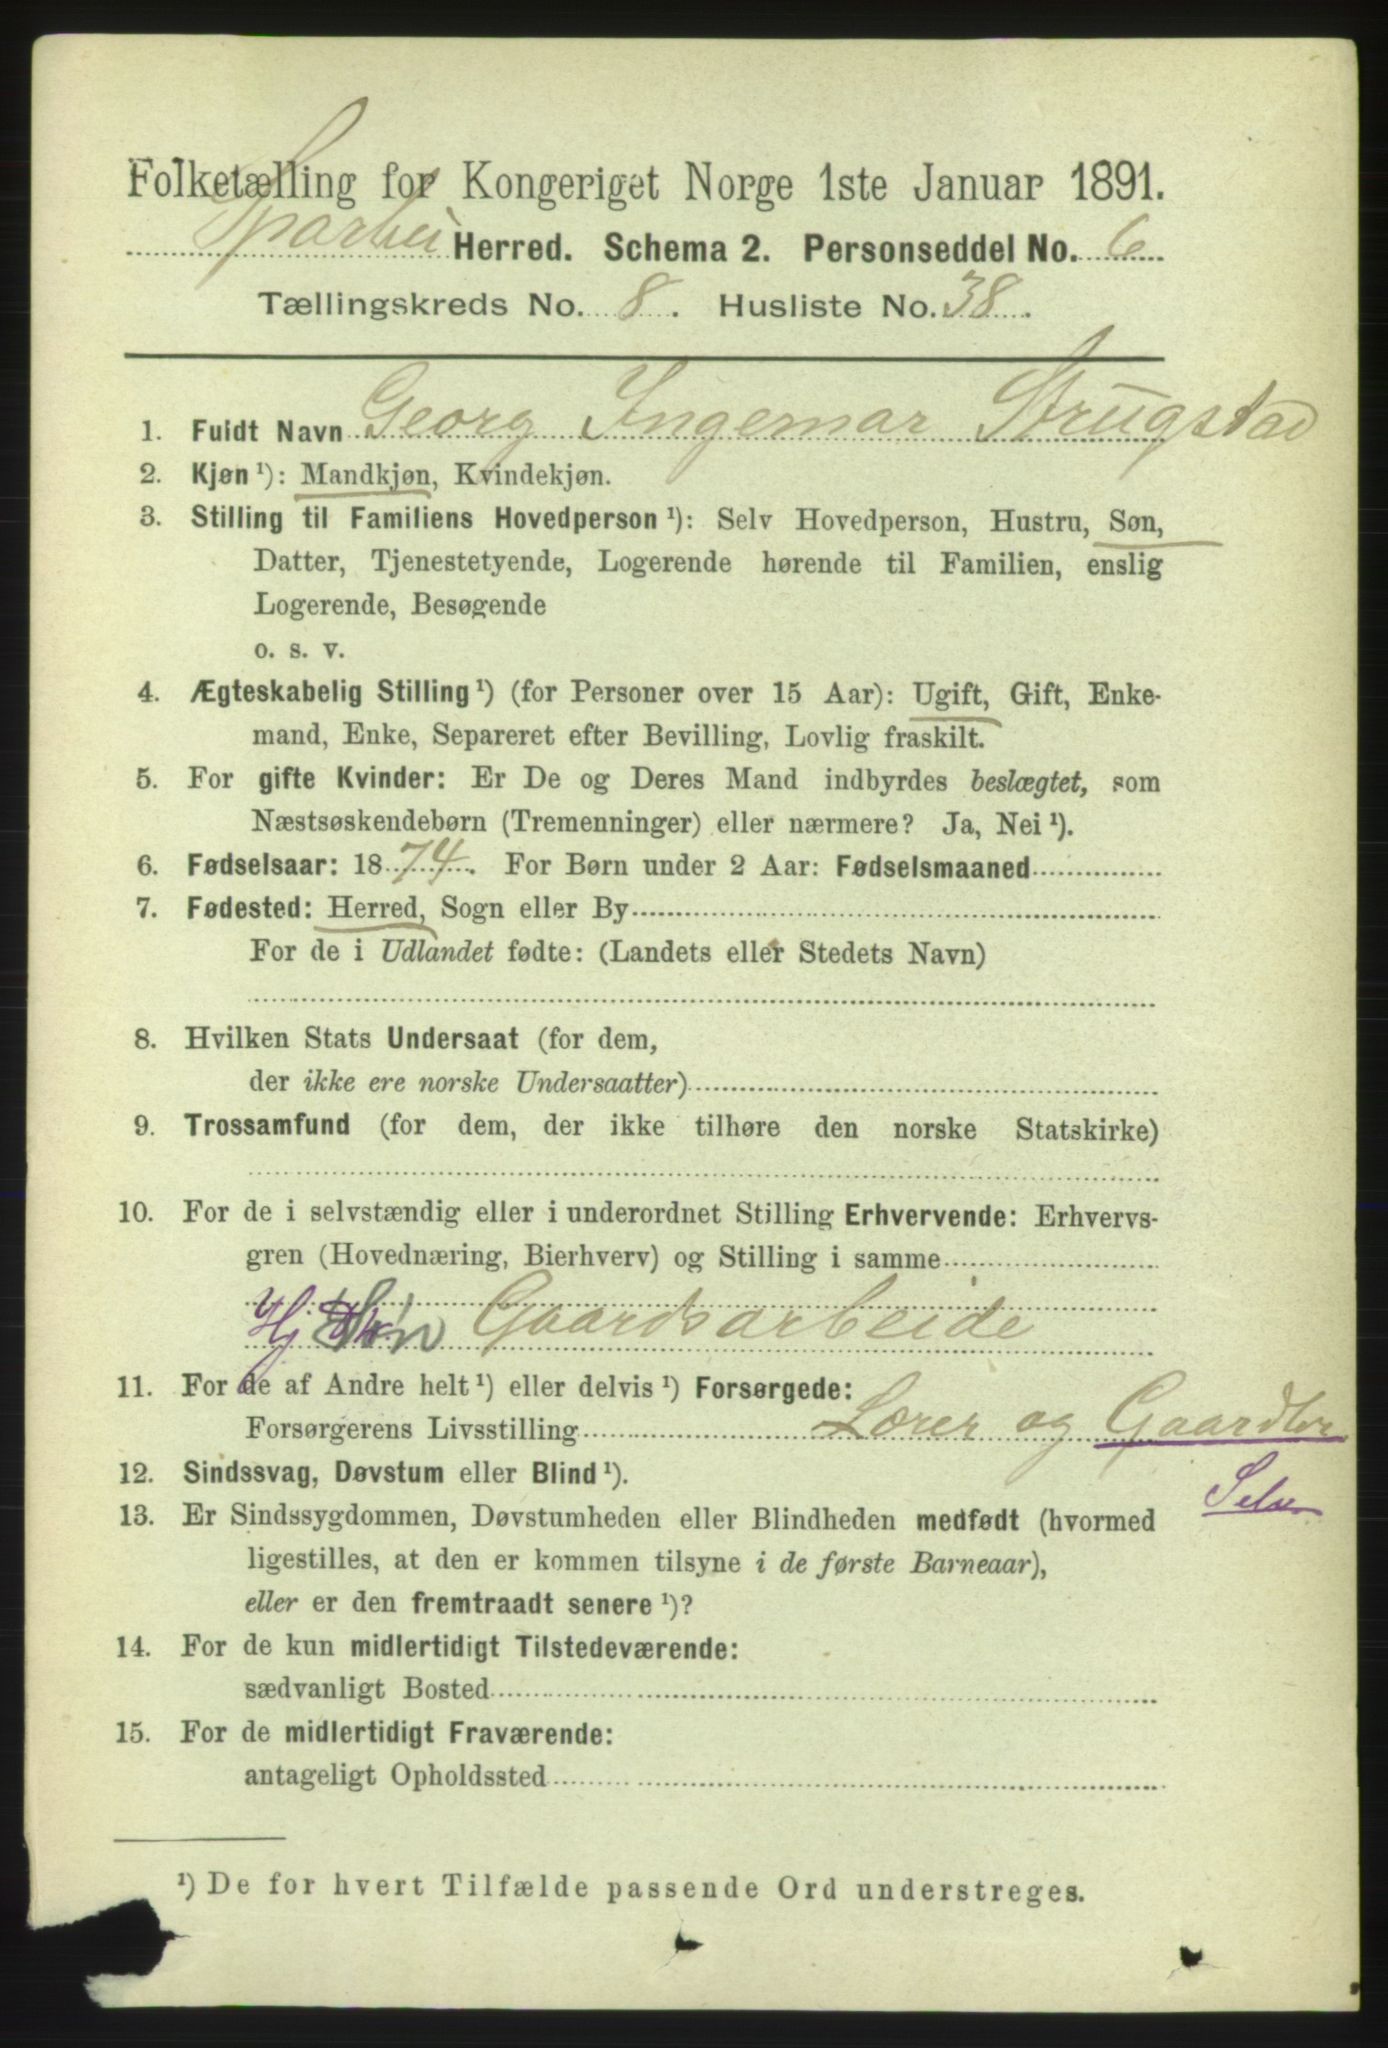 Folketælling for Kongeriget Norge 1ste Januar 1891.
Sparbu Herred. Schema 2. Personseddel No. 6
Tællingskreds No. 8. Husliste No. 38.
1. Fuldt Navn Georg Ingemar Strugstad
2. Kjøn ¹): Mandkjøn, Kvindekjøn.
3. Stilling til Familiens Hovedperson ¹): Selv Hovedperson, Hustru, Søn,
Datter, Tjenestetyende, Logerende hørende til Familien, enslig
Logerende, Besøgende
o. s. v.
4. Ægteskabelig Stilling ¹) (for Personer over 15 Aar): Ugift, Gift, Enke-
mand, Enke, Separeret efter Bevilling, Lovlig fraskilt.
5. For gifte Kvinder: Er De og Deres Mand indbyrdes beslægtet, som
Næstsøskendebørn (Tremenninger) eller nærmere? Ja, Nei ¹).
6. Fødselsaar: 1874. For Børn under 2 Aar: Fødselsmaaned
7. Fødested: Herred, Sogn eller By
For de i Udlandet fødte: (Landets eller Stedets Navn)
8. Hvilken Stats Undersaat (for dem,
der ikke ere norske Undersaatter)
9. Trossamfund (for dem, der ikke tilhøre den norske Statskirke)
10. For de i selvstændig eller i underordnet Stilling Erhvervende: Erhvervs-
gren (Hovednæring, Bierhverv) og Stilling i samme
Hj Søn Gaardsarbeide
11. For de af Andre helt ¹) eller delvis ¹) Forsørgede:
Forsørgerens Livsstilling Lærer og Gaardbr
Selv
12. Sindssvag, Døvstum eller Blind ¹).
13. Er Sindssygdommen, Døvstumheden eller Blindheden medfødt (hvormed
ligestilles, at den er kommen tilsyne i de første Barneaar),
eller er den fremtraadt senere ¹)?
14. For de kun midlertidigt Tilstedeværende:
sædvanligt Bosted
15. For de midlertidigt Fraværende:
antageligt Opholdssted
¹) De for hvert Tilfælde passende Ord understreges.